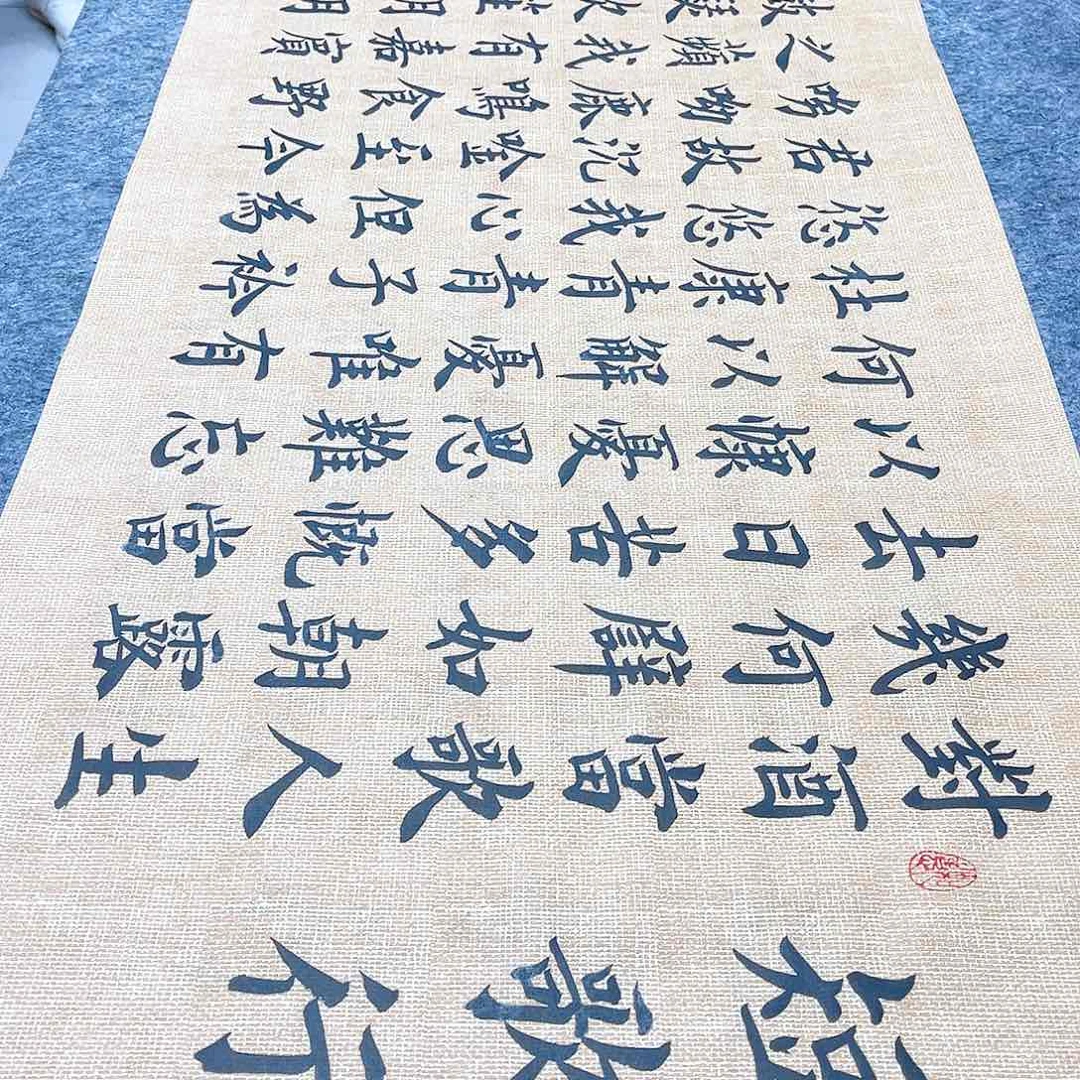 短歌行
對酒當歌人生
幾何譬如朝露
去日苦多慨當
以慷憂思難忘
何以解憂唯有
杜康青青子衿
悠悠我心但為
君故沉吟至今
呦呦鹿鳴食野
之蘋我有嘉賓